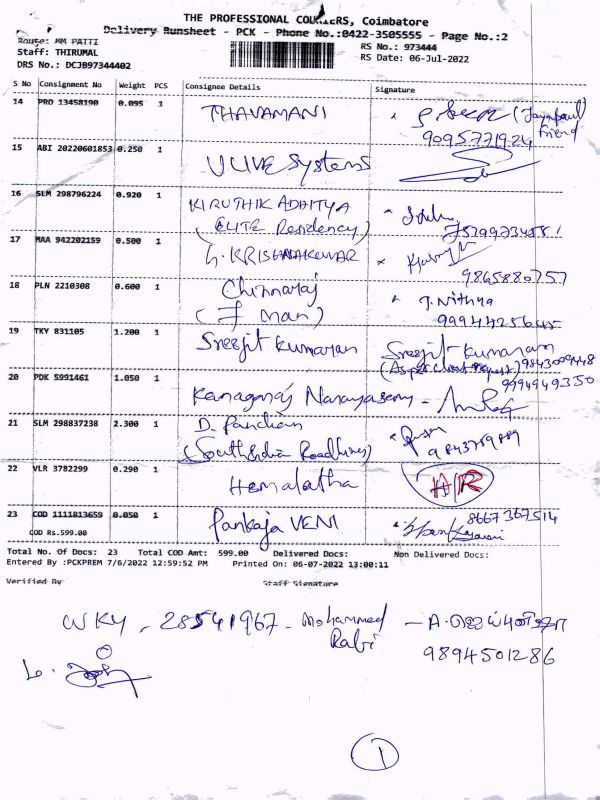 THE PROFESSIONAL COURIERS, Coimbatore
Delivery Runsheet - PCK - Phone No.:0422-3505555 - Page No.:2
Route: MM PATTI
Staff: THIRUMAL
DRS No.: DCJB97344402
RS No.: 973444
RS Date: 06-Jul-2022
S No Consignment No Weight PCS Consignee Details Signature
14 PRO 13458190 0.095 1 THAVAMANI (Jayapaul) friend
9095771924
15 ABI 20220601853 0.250 1 ULIVE Systems
16 SLM 298796224 0.920 1 KIRUTHIK ADHITYA
(ELITE Residency)
17 MAA 942202159 0.500 1 G. KRISHNAKUMAR
9865880757
18 PLN 2210308 0.600 1 Chinnaraj T. Nithya
(F man)
19 TKY 831105 1.200 1 Sreejit Kumaran Sreejit Kumaran
(As per client request) 9843009448
9994949350
20 PDK 5991461 1.050 1 Kanagaraj Narayanasamy -
21 SLM 298837238 2.300 1 D. Pandian
(South India Roadlines)
22 VLR 3782299 0.290 1 Hemalatha H/R
23 COD 1111813659 0.050 1 Pankaja VENI 8667367514
COD Rs.599.00
Total No. Of Docs: 23 Total COD Amt: 599.00 Delivered Docs: Non Delivered Docs:
Entered By :PCKPREM 7/6/2022 12:59:52 PM Printed On: 06-07-2022 13:00:11
Verified By Staff Signature
WKY - 28541967 - Mohammed Rabi
9894501286
1